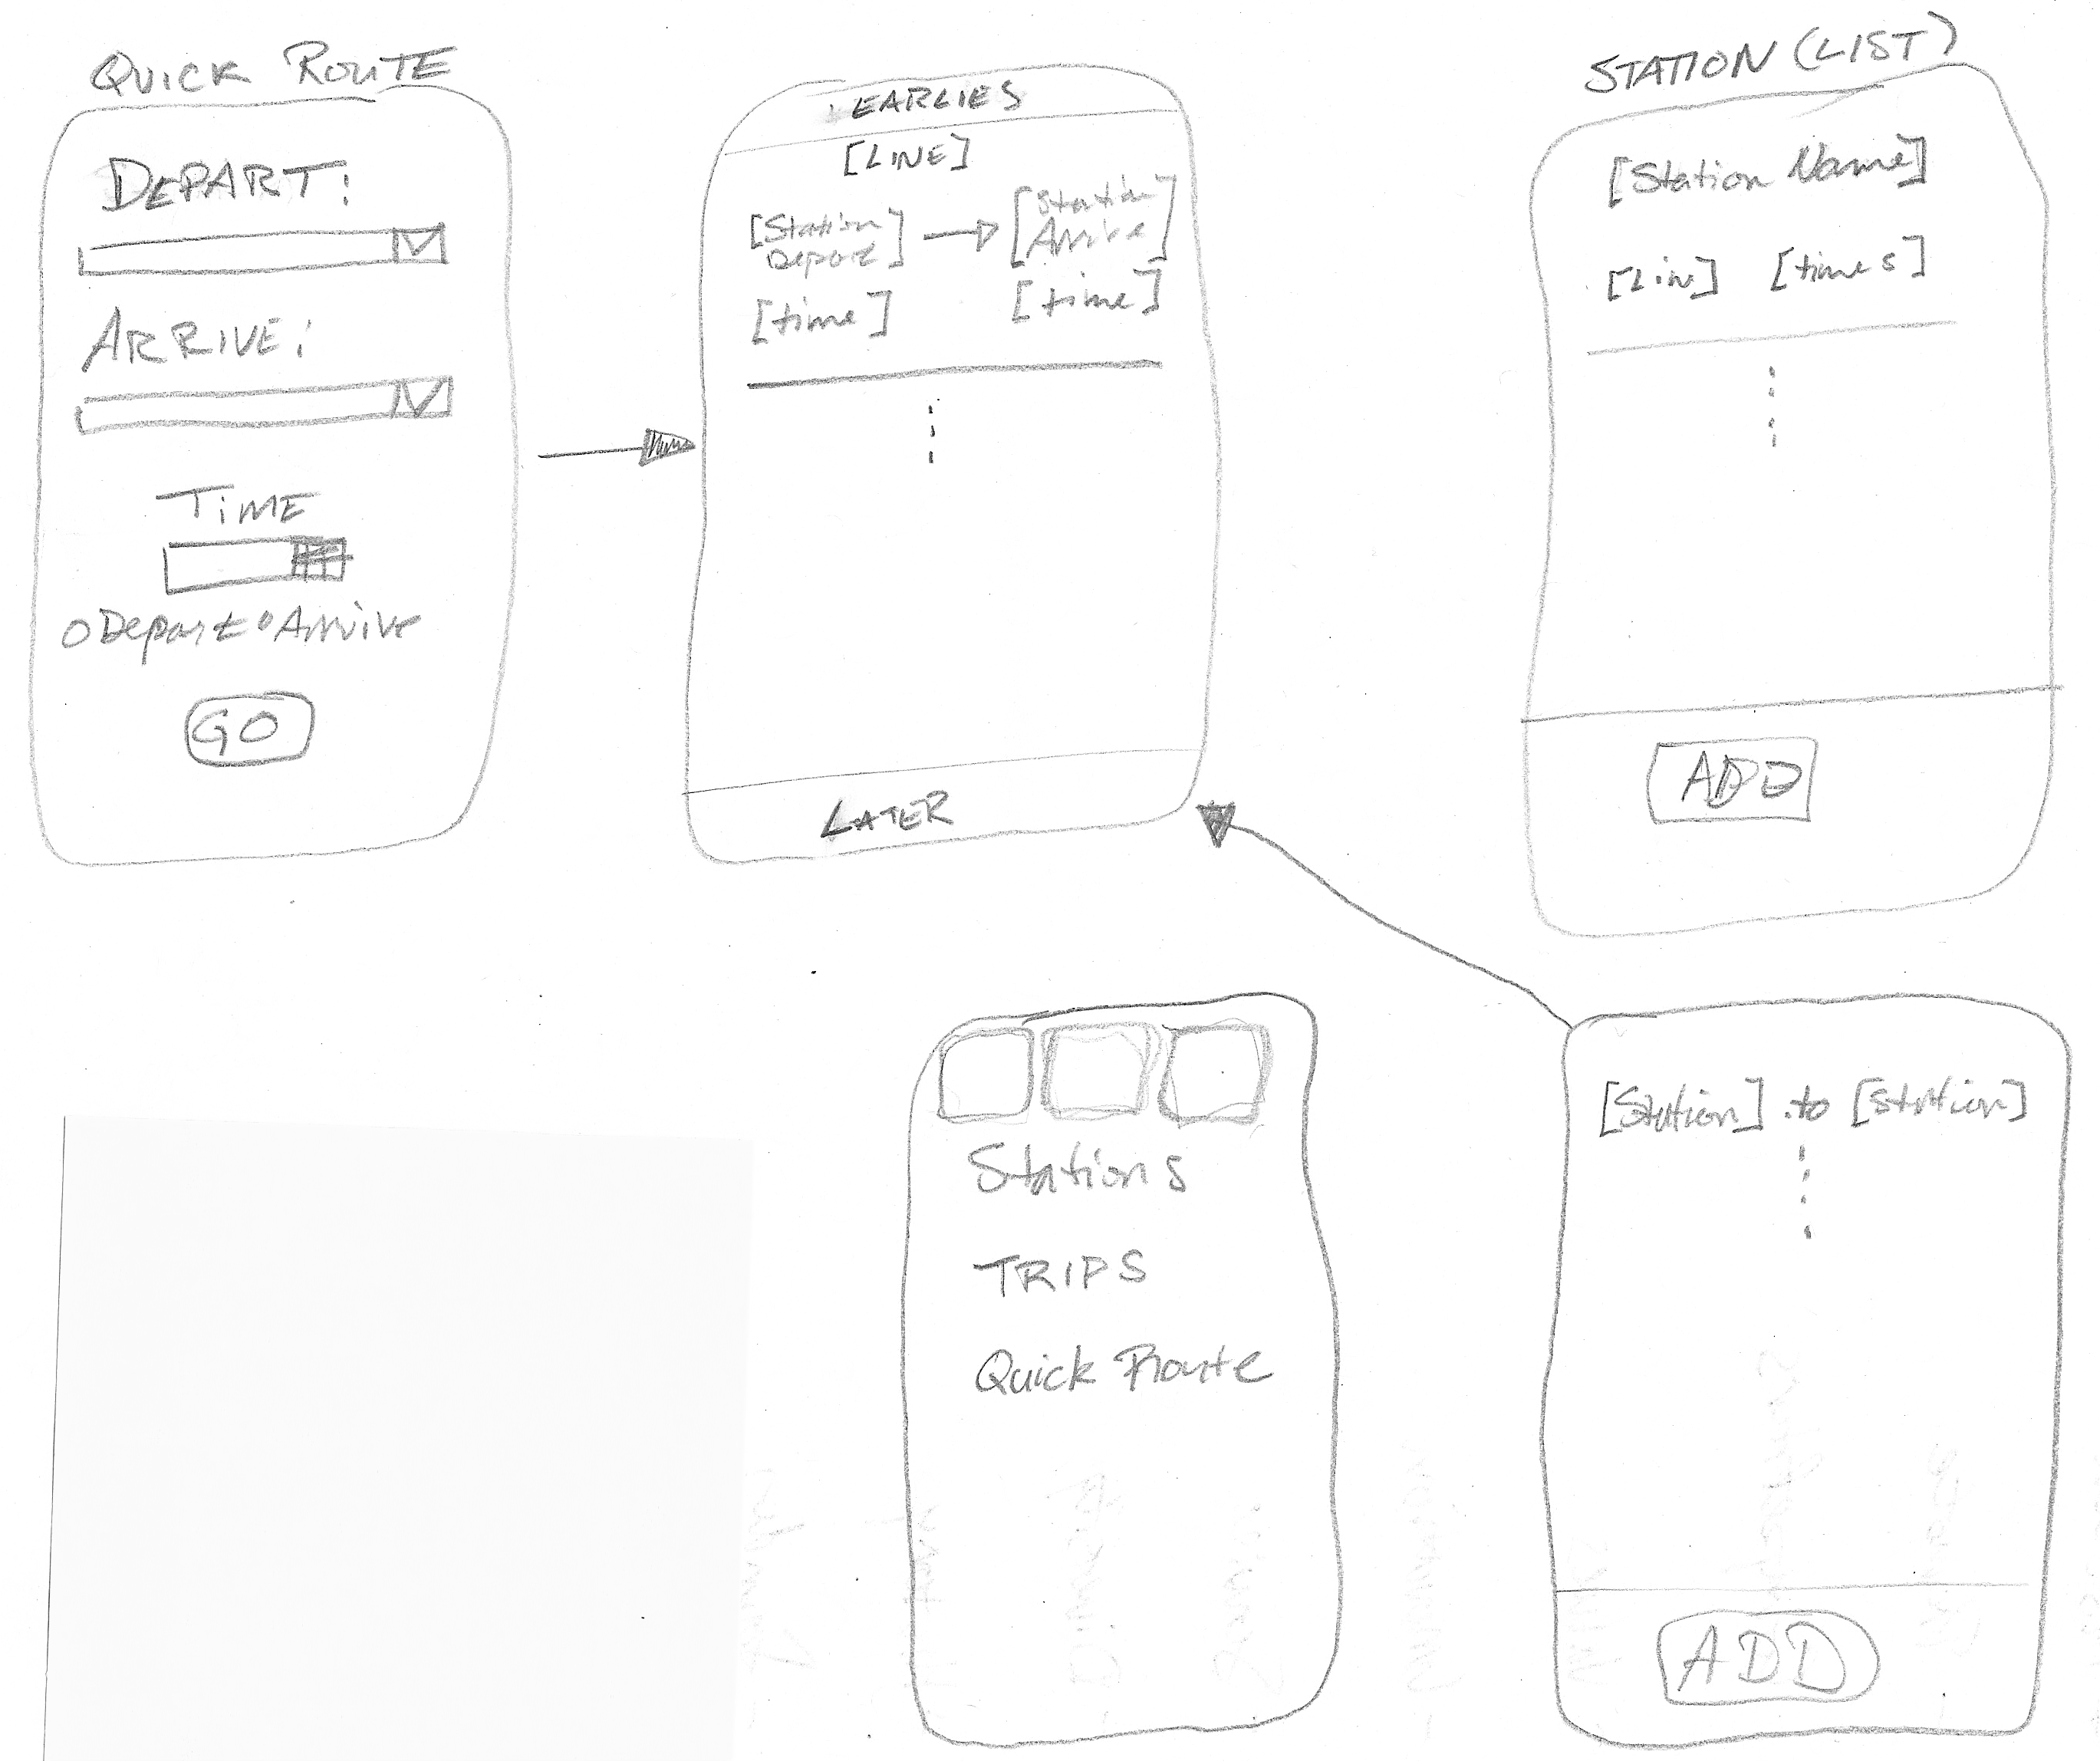 QUICK ROUTE
DEPART:
ARRIVE:
TIME
Depart Arrive
GO
EARLIES
[LINE]
[Station Depart] [Station Arrive]
[time] [time]
LATER
STATION (LIST)
[Station Name]
[Lin] [times]
ADD
Stations
TRIPS
Quick Route
[Station] to [station]
ADD